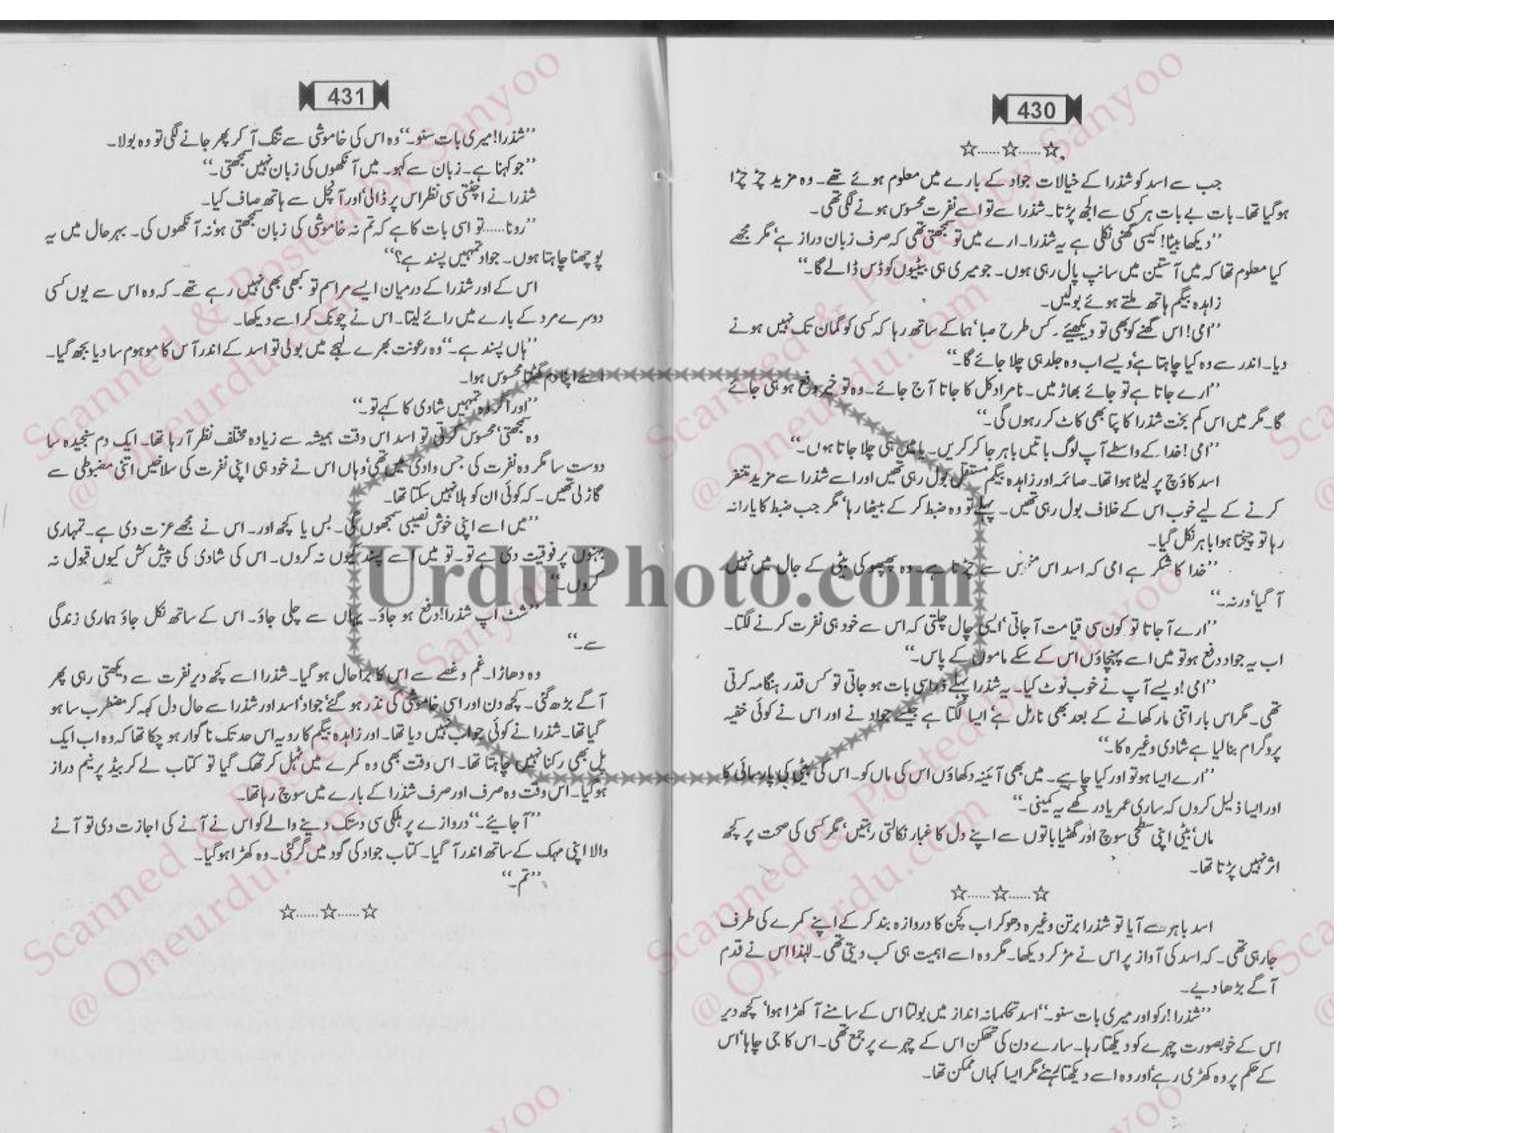 430
☆.....☆.....☆
جب سے اسد کو شذرا کے خیالات جواد کے بارے میں معلوم ہوئے تھے۔ وہ مزید چڑ چڑا
ہوگیا تھا۔ بات بے بات ہر کسی سے الجھ پڑتا۔ شذرا سے تو اسے نفرت محسوس ہونے لگی تھی۔
’’دیکھا بیٹا! کیسی گھنی نکلی ہے یہ شذرا۔ ارے میں تو سمجھتی تھی کہ صرف زبان دراز ہے‘ مگر مجھے
کیا معلوم تھا کہ میں آستین میں سانپ پال رہی ہوں۔ جو میری ہی بیٹیوں کو ڈس ڈالے گا۔‘‘
زاہدہ بیگم ہاتھ ملتے ہوئے بولیں۔
’’امی! اس گھنے کو بھی تو دیکھئے۔ کس طرح صبا‘ ہما کے ساتھ رہا کہ کسی کو گمان تک نہیں ہونے
دیا۔ اندر سے وہ کیا چاہتا ہے‘ ویسے اب وہ جلد ہی چلا جائے گا۔‘‘
’’ارے جاتا ہے تو جائے بھاڑ میں۔ نامراد کل کا جاتا آج جائے۔ وہ تو خیر دفع ہو ہی جائے
گا۔ مگر میں اس کم بخت شذرا کا پتا بھی کاٹ کر رہوں گی۔‘‘
’’امی! خدا کے واسطے آپ لوگ باتیں باہر جا کر کریں۔ یا میں ہی چلا جاتا ہوں۔‘‘
اسد کاؤچ پر لیٹا ہوا تھا۔ صائمہ اور زاہدہ بیگم مستقل بول رہی تھیں اور اسے شذرا سے مزید متنفر
کرنے کے لیے خوب اس کے خلاف بول رہی تھیں۔ پہلے تو وہ ضبط کر کے بیٹھا رہا‘ مگر جب ضبط کا یارا نہ
رہا تو چیختا ہوا باہر نکل گیا۔
’’خدا کا شکر ہے امی کہ اسد اس سے چڑتا ہے۔ وہ پھپھو کی بیٹی کے جال میں نہیں
آ گیا‘ ورنہ۔‘‘
’’ارے آ جاتا تو کون سی قیامت آ جاتی‘ ایسی چال چلتی کہ اس سے خود ہی نفرت کرنے لگتا۔
اب یہ جواد دفع ہو تو میں اسے پہنچاؤں اس کے سگے ماموں کے پاس۔‘‘
’’امی! ویسے آپ نے خوب نوٹ کیا۔ یہ شذرا پہلے ذرا سی بات ہو جاتی تو کس قدر ہنگامہ کرتی
تھی۔ مگر اس بار اتنی مار کھانے کے بعد بھی نارمل ہے ایسا لگتا ہے جیسے جواد نے اور اس نے کوئی خفیہ
پروگرام بنا لیا ہے شادی وغیرہ کا۔‘‘
’’ارے ایسا ہو تو اور کیا چاہیے۔ میں بھی آئینہ دکھاؤں اس کی ماں کو۔ اس کی بیٹی کی پارسائی کا
اور ایسا ذلیل کروں کہ ساری عمر یاد رکھے یہ کمینی۔‘‘
ماں‘ بیٹی اپنی سطحی سوچ اور گھٹیا باتوں سے اپنے دل کا غبار نکالتی رہتیں‘ مگر کسی کی صحت پر کچھ
اثر نہیں پڑتا تھا۔
☆.....☆.....☆
اسد باہر سے آیا تو شذرا برتن وغیرہ دھو کر اب کچن کا دروازہ بند کر کے اپنے کمرے کی طرف
جا رہی تھی۔ کہ اسد کی آواز پر اس نے مڑ کر دیکھا۔ مگر وہ اسے اہمیت ہی کب دیتی تھی۔ لہٰذا اس نے قدم
آگے بڑھا دیے۔
’’شذرا! رکو اور میری بات سنو۔‘‘ اسد تحکمانہ انداز میں بولتا اس کے سامنے آ کھڑا ہوا‘ کچھ دیر
اس کے خوبصورت چہرے کو دیکھتا رہا۔ سارے دن کی تھکن اس کے چہرے پر جمع تھی۔ اس کا جی چاہا‘ اس
کے حکم پر وہ کھڑی رہے‘ اور وہ اسے دیکھتا رہے‘ مگر ایسا کہاں ممکن تھا۔
431
’’شذرا! میری بات سنو۔‘‘ وہ اس کی خاموشی سے تنگ آ کر پھر جانے لگی تو وہ بولا۔
’’جو کہنا ہے۔ زبان سے کہو۔ میں آنکھوں کی زبان نہیں سمجھتی۔‘‘
شذرا نے اچٹتی سی نظر اس پر ڈالی‘ اور آنچل سے ہاتھ صاف کیا۔
’’رونا..... تو اسی بات کا ہے کہ تم نہ خاموشی کی زبان سمجھتی ہو‘ نہ آنکھوں کی۔ بہرحال میں یہ
پوچھنا چاہتا ہوں۔ جواد تمہیں پسند ہے؟‘‘
اس کے اور شذرا کے درمیان ایسے مراسم تو کبھی بھی نہیں رہے تھے۔ کہ وہ اس سے یوں کسی
دوسرے مرد کے بارے میں رائے لیتا۔ اس نے چونک کر اسے دیکھا۔
’’ہاں پسند ہے۔‘‘ وہ رعونت بھرے لہجے میں بولی تو اسد کے اندر آس کا موہوم سا دیا بجھ گیا۔
اسے اپنا دم گھٹتا محسوس ہوا۔
’’اور اگر وہ تمہیں شادی کا کہے تو۔‘‘
وہ سمجھتی‘ محسوس کرتی‘ تو اسد اس وقت ہمیشہ سے زیادہ مختلف نظر آ رہا تھا۔ ایک دم سنجیدہ سا
دوست سا مگر وہ نفرت کی جس وادی میں تھی‘ وہاں اس نے خود ہی اپنی نفرت کی سلاخیں اتنی مضبوطی سے
گاڑ لی تھیں۔ کہ کوئی ان کو ہلا نہیں سکتا تھا۔
’’میں اسے اپنی خوش نصیبی سمجھوں گی۔ بس یا کچھ اور۔ اس نے مجھے عزت دی ہے۔ تمہاری
بہنوں پر فوقیت دی ہے تو۔ تو میں اسے پسند کیوں نہ کروں۔ اس کی شادی کی پیش کش کیوں قبول نہ
کروں۔‘‘
’’شٹ اپ شذرا! دفع ہو جاؤ۔ یہاں سے چلی جاؤ۔ اس کے ساتھ نکل جاؤ ہماری زندگی
سے۔‘‘
وہ دھاڑا۔ غم و غصے سے اس کا برا حال ہو گیا۔ شذرا اسے کچھ دیر نفرت سے دیکھتی رہی پھر
آگے بڑھ گئی۔ کچھ دن اور اسی خاموشی کی نذر ہو گئے‘ جواد‘ اسد اور شذرا سے حال دل کہہ کر مضطرب سا ہو
گیا تھا۔ شذرا نے کوئی جواب نہیں دیا تھا۔ اور زاہدہ بیگم کا رویہ اس حد تک ناگوار ہو چکا تھا کہ وہ اب ایک
پل بھی رکنا نہیں چاہتا تھا۔ اس وقت بھی وہ کمرے میں ٹہل کر تھک گیا تو کتاب لے کر بیڈ پر نیم دراز
ہو گیا۔ اس وقت وہ صرف اور صرف شذرا کے بارے میں سوچ رہا تھا۔
’’آ جائیے۔‘‘ دروازے پر ہلکی سی دستک دینے والے کو اس نے آنے کی اجازت دی تو آنے
والا اپنی مہک کے ساتھ اندر آ گیا۔ کتاب جواد کی گود میں گر گئی۔ وہ کھڑا ہو گیا۔
’’تم۔‘‘
☆.....☆.....☆
UrduPhoto.com
Scanned & Posted by Sanyoo
@ Oneurdu.com